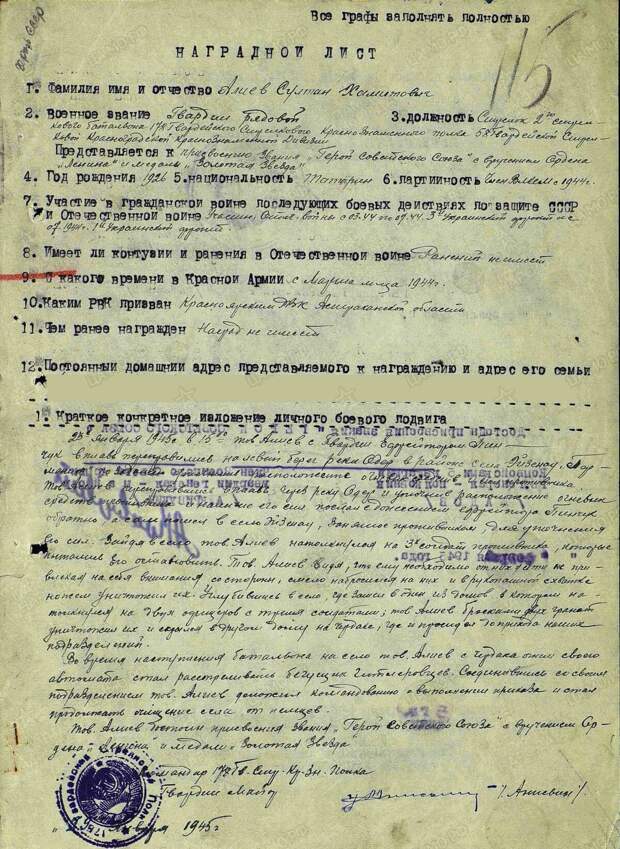 Герой СССР
Все графы заполнять полностью
115
НАГРАДНОЙ ЛИСТ
1. Фамилия имя и отчество Алиев Султан Хамитович
2. Военное звание Гвардии рядовой 3.должность Стрелок 2го стрел-
кового батальона 178 Гвардейского Стрелкового Краснознаменного полка 58 Гвардейской Стрел-
ковой Красноградской Краснознаменной Дивизии
Представляется к присвоению звания „Герой Советского Союза" с вручением Ордена
„Ленина" и медали „Золотая Звезда"
4. Год рождения 1926 5.национальность Татарин 6.партийность Член ВЛКСМ с 1944г.
7. Участие в гражданской войне последующих боевых действиях по защите СССР
и Отечественной войне Участник Отеч. войны с 03.44 по 07.44 3й Украинский фронт и с
07.1944г. 1й Украинский фронт.
8. Имеет ли контузии и ранения в Отечественной войне Ранений не имеет
9. С какого времени в Красной Армии с Марта м-ца 1944г.
10.Каким РВК призван Красноярским РВК Астраханской области
11.Чем ранее награжден Наград не имеет
12.Постоянный домашний адрес представляемого к награждению и адрес его семьи
1. Краткое конкретное изложение личного боевого подвига
января 1945г. в 15 тов. Алиев с Гвардии Ефрейтором Пин-
чук вплавь переправились на левый берег реки Одер в районе села Эйзенау,
Тов. Алиев переправившись вплавь через реку Одер и уточнив расположение огневых
средств противника и наличие его сил, послал с донесением ефрейтора Пинчук
обратно, а сам пошел в село Эйзенау, занятое противником для уточнения
его сил. Зайдя в село тов. Алиев натолкнулся на 3х солдат противника, которые
пытались его остановить. Тов. Алиев видя, что ему необходимо от них уйти не при-
влекая на себя внимания со стороны, смело набросился на них и в рукопашной схватке
ножем уничтожил их. Углубившись в село, где зашел в один из домов в котором на-
толкнулся на двух офицеров с тремя солдатами; тов. Алиев бросками двух гранат
уничтожил их и скрылся в другом доме на чердаке, где и просидел до прихода наших
подразделений.
Во время наступления батальона на село тов. Алиев с чердака огнем своего
автомата стал расстреливать бегущих гитлеровцев. Соединившись со своим
подразделением тов. Алиев доложил командованию о выполнении приказа и стал
продолжать очищение села от немцев.
Тов. Алиев достоин присвоения звания „Герой Советского Союза" с вручением Ор-
дена „Ленина и медали „Золотая Звезда"
Командир 178 Гв. Стр. Кр. Зн. Полка
Гвардии Майор
января 1945г